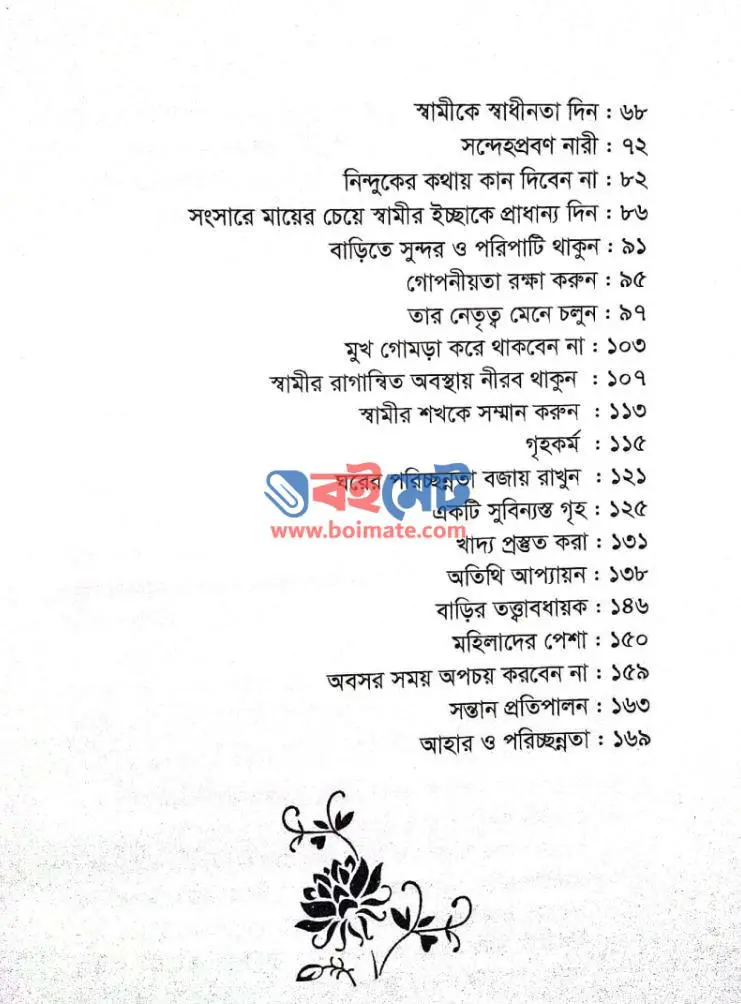 স্বামীকে স্বাধীনতা দিন : ৬৮
সন্দেহপ্রবণ নারী : ৭২
নিন্দুকের কথায় কান দিবেন না : ৮২
সংসারে মায়ের চেয়ে স্বামীর ইচ্ছাকে প্রাধান্য দিন : ৮৬
বাড়িতে সুন্দর ও পরিপাটি থাকুন : ৯১
গোপনীয়তা রক্ষা করুন : ৯৫
তার নেতৃত্ব মেনে চলুন : ৯৭
মুখ গোমড়া করে থাকবেন না : ১০৩
স্বামীর রাগান্বিত অবস্থায় নীরব থাকুন : ১০৭
স্বামীর শখকে সম্মান করুন : ১১৩
গৃহকর্ম : ১১৫
ঘরের পরিচ্ছন্নতা বজায় রাখুন : ১২১
বইমেট
একটি সুবিন্যস্ত গৃহ : ১২৫
www.boimate.com
খাদ্য প্রস্তুত করা : ১৩১
অতিথি আপ্যায়ন : ১৩৮
বাড়ির তত্ত্বাবধায়ক : ১৪৬
মহিলাদের পেশা : ১৫০
অবসর সময় অপচয় করবেন না : ১৫৯
সন্তান প্রতিপালন : ১৬৩
আহার ও পরিচ্ছন্নতা : ১৬৯